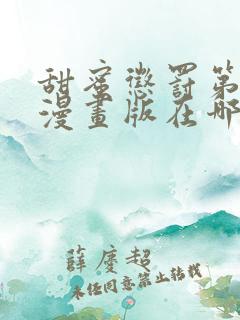 甜蜜懲罰第
漫畫版在哪
薛慶超
未经同意禁止转载